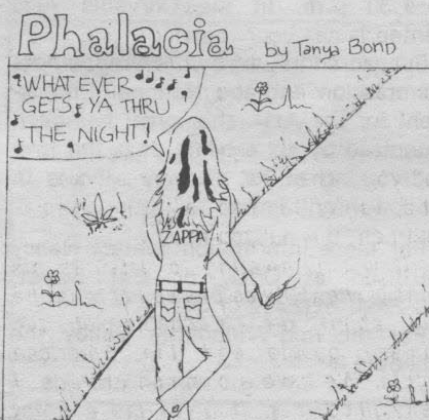 Phalacia
by Tanya Bond
WHAT EVER
GETS YA THRU
THE NIGHT!
ZAPPA